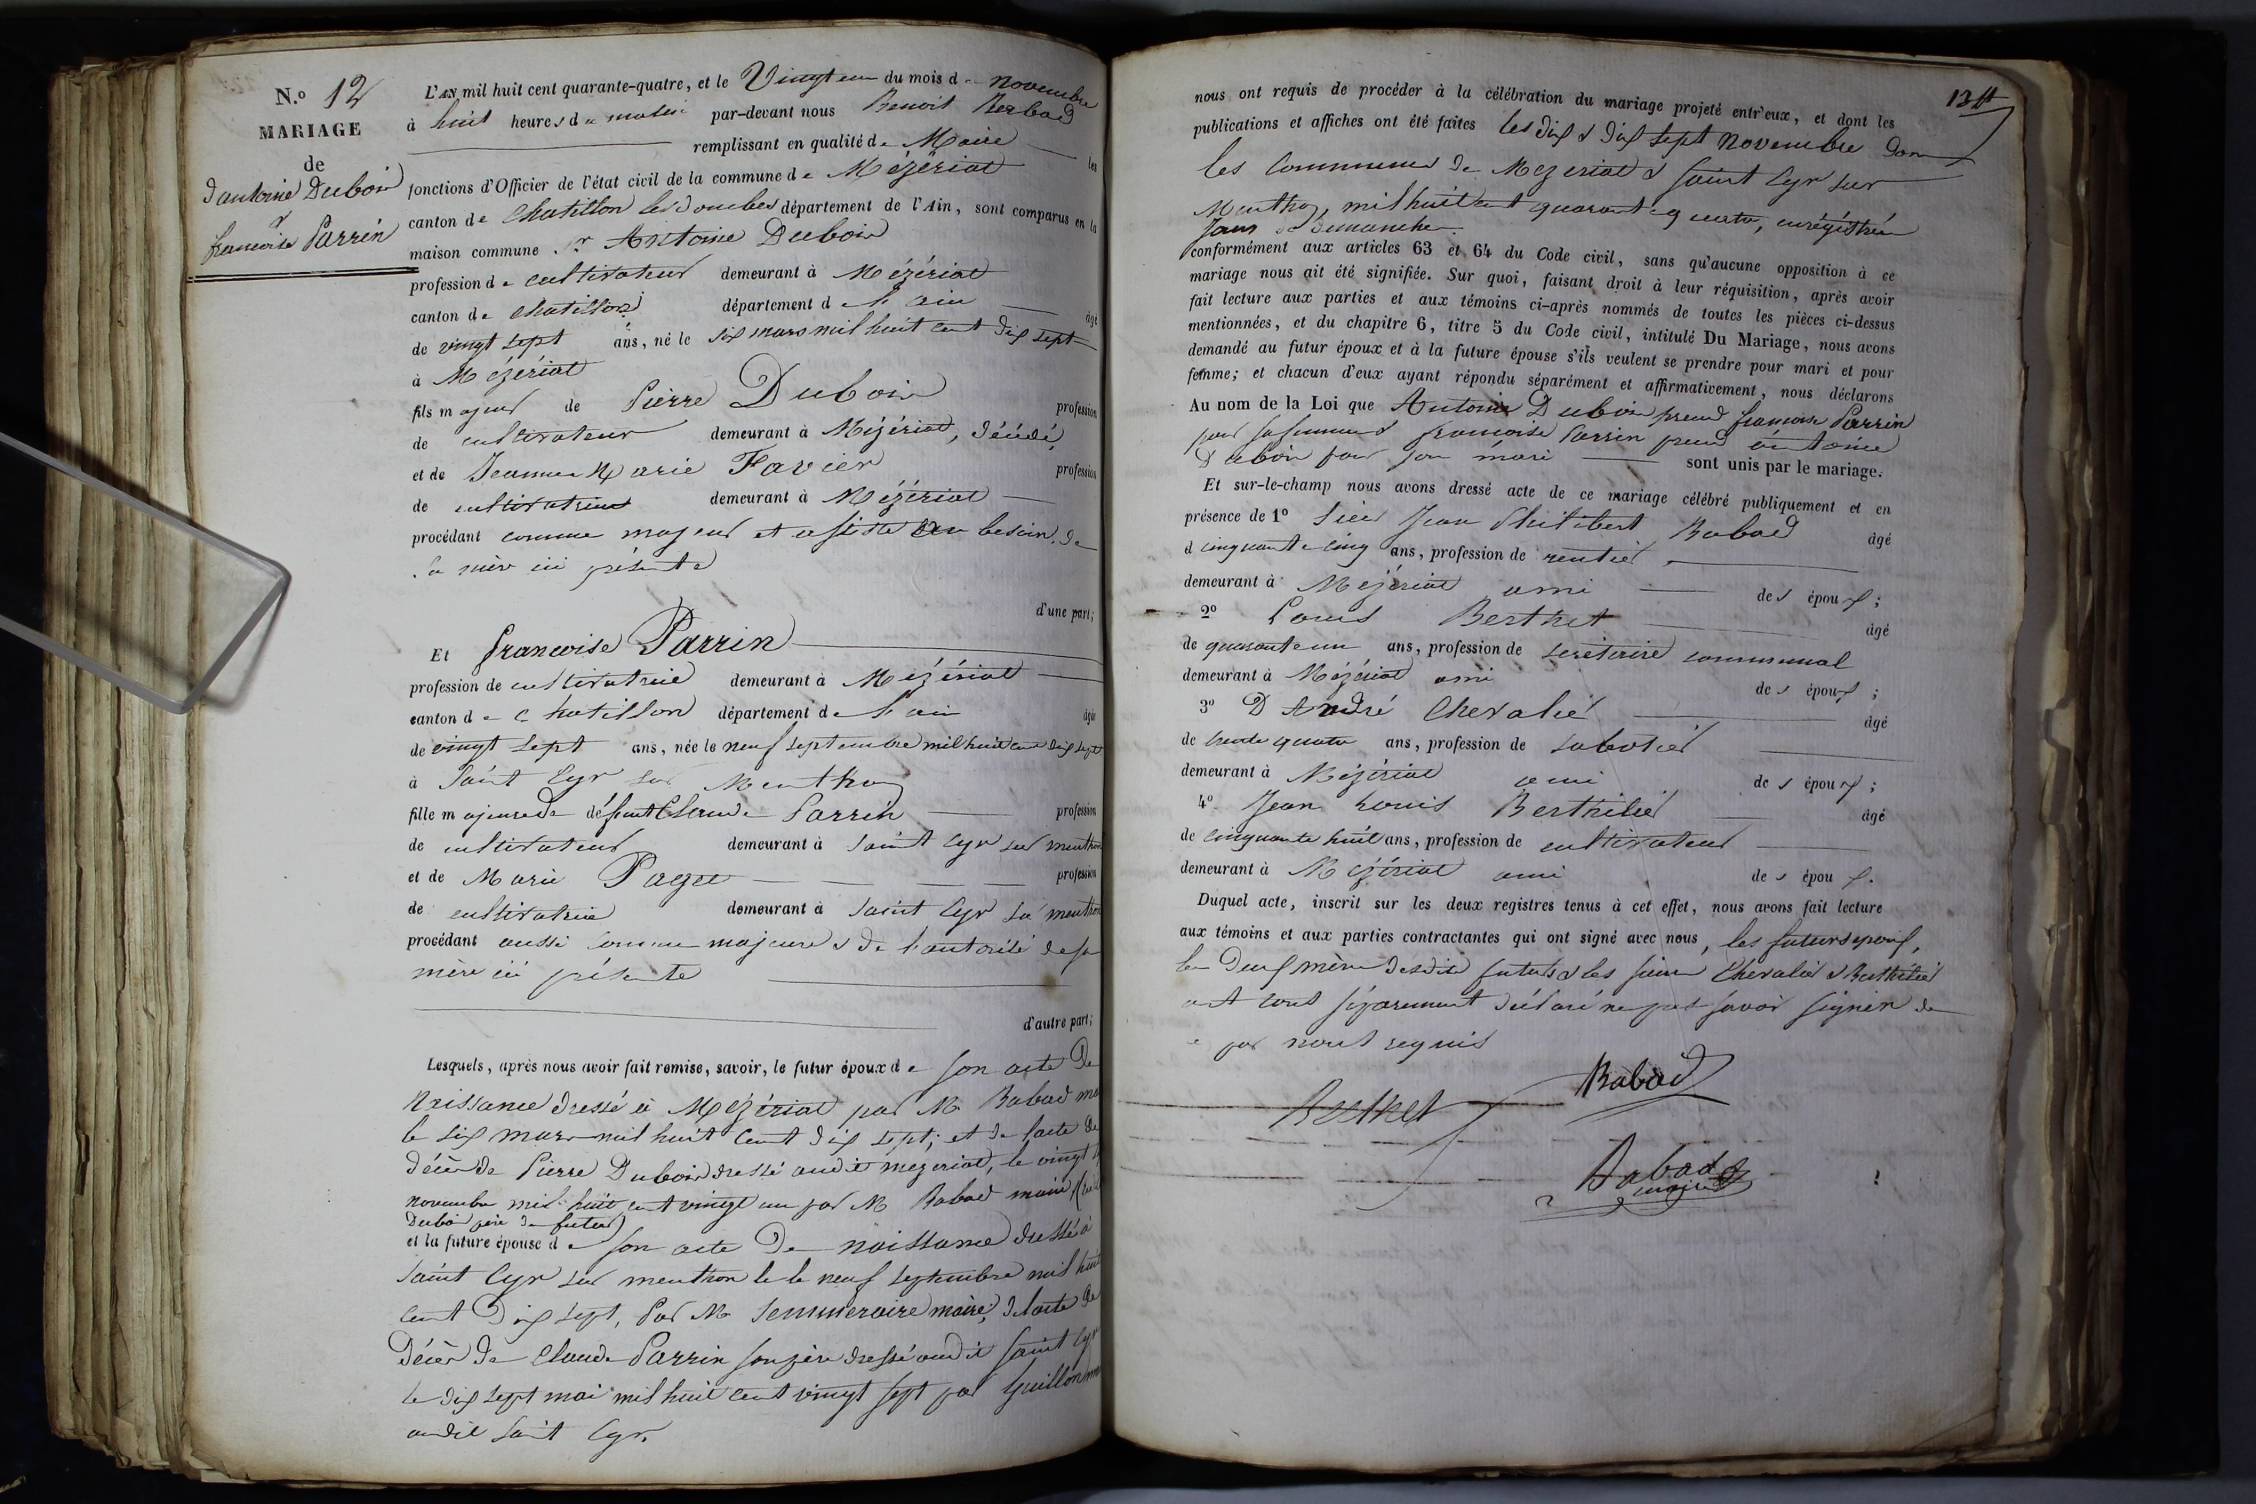 N.o 12
MARIAGE
de
d'antoine Duboir
&
francoise Parrin
L'AN mil huit cent quarante-quatre, et le Vingt un du mois de novembre
à huit heures du matin par-devant nous Benoit Rabad
remplissant en qualité de Maire les
fonctions d'Officier de l'état civil de la commune de Mézériat
canton de Chatillon les dombes département de l'Ain, sont comparus en la
maison commune Sr Antoine Duboir
profession de cultivateur demeurant à Mézériat
canton de Chatillon département de l'ain âgé
de vingt sept ans, né le six mars mil huit cent dix sept
à Mézériat
fils majeur de Pierre Duboir profession
de cultivateur demeurant à Mézériat, décédé,
et de Jeanne Marie Favier profession
de cultivatrice demeurant à Mézériat
procédant comme majeur et assisté au besoin de
sa mère ici présente
d'une part;
Et francoise Parrin
profession de cultivatrice demeurant à Mézériat
canton de Chatillon département de l'ain âgée
de vingt sept ans, née le neuf septembre mil huit cent dix sept
à Saint Cyr sur Menthon
fille majeure de défunt Claude Parrin profession
de cultivateur demeurant à Saint Cyr sur menthon
et de Marie Page profession
de cultivatrice demeurant à Saint Cyr sur menthon
procédant aussi comme majeure & de l'autorité de sa
mère ici présente
d'autre part;
Lesquels, après nous avoir fait remise, savoir, le futur époux de son acte De
naissance dressé à Mézériat par M Rabad
le six mars mil huit cent dix sept; et de l'acte de
décès de Pierre Duboir dressé audit mezeriat, le vingt
novembre mil huit cent vingt un par M Rabad maire
Duboir père du futur)
et la future épouse de son acte De naissance dressé à
Saint Cyr sur menthon le le neuf septembre mil huit
cent Dix sept, Par M Semmeraire maire, de l'acte de
Décès de Claude Parrin son père dressé audit Saint Cyr
le dix sept mai mil huit cent vingt sept par Guillon
audit Saint Cyr.
134
nous ont requis de procéder à la célébration du mariage projeté entr'eux, et dont les
publications et affiches ont été faites les dix & dix sept novembre dans
les Communes de Mezeriat & Saint Cyr sur
Menthon, mil huit cent quarante quatre, enrégistrées
Jours de dimanche.
conformément aux articles 63 et 64 du Code civil, sans qu'aucune opposition à ce
mariage nous ait été signifiée. Sur quoi, faisant droit à leur réquisition, après avoir
fait lecture aux parties et aux témoins ci-après nommés de toutes les pièces ci-dessus
mentionnées, et du chapitre 6, titre 5 du Code civil, intitulé Du Mariage, nous avons
demandé au futur époux et à la future épouse s'ils veulent se prendre pour mari et pour
femme; et chacun d'eux ayant répondu séparément et affirmativement, nous déclarons
Au nom de la Loi que Antoine Duboir prend francoise Parrin
pour sa femme & francoise Parrin prend antoine
Duboir pour son mari sont unis par le mariage.
Et sur-le-champ nous avons dressé acte de ce mariage célébré publiquement et en
présence de 1o Sieur Jean Philibert Rabad âgé
d cinquante cinq ans, profession de rentier
demeurant à Mézériat ami des époux;
2o Louis Berthet âgé
de quarante un ans, profession de secrétaire communal
demeurant à Mézériat ami des époux;
3o D André Chevalié âgé
de trente quatre ans, profession de sabotier
demeurant à Mézériat ami des époux;
4o Jean Louis Berthilié âgé
de cinquante huit ans, profession de cultivateur
demeurant à Mézériat ami des époux.
Duquel acte, inscrit sur les deux registres tenus à cet effet, nous avons fait lecture
aux témoins et aux parties contractantes qui ont signé avec nous, les futurs epoux,
les deux mères desdits futurs & les sieurs Chevalié & Berthilié
ont tous séparement déclaré ne pas savoir signer de
ce par nous requis
Berthet
Rabad
Rabad
maire